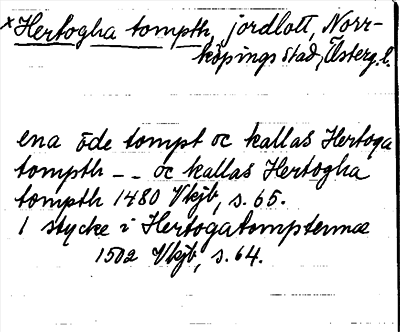 ×Hertogha tompth, jordlott, Norr-
köpings stad, Österg. l.
ena öde tompt oc kallas Hertoga
tompth – – oc kallas Hertogha
tompth 1480 Vkjb, s. 65.
1 stycke i Hertogatompternæ
1502 Vkjb, s. 64.